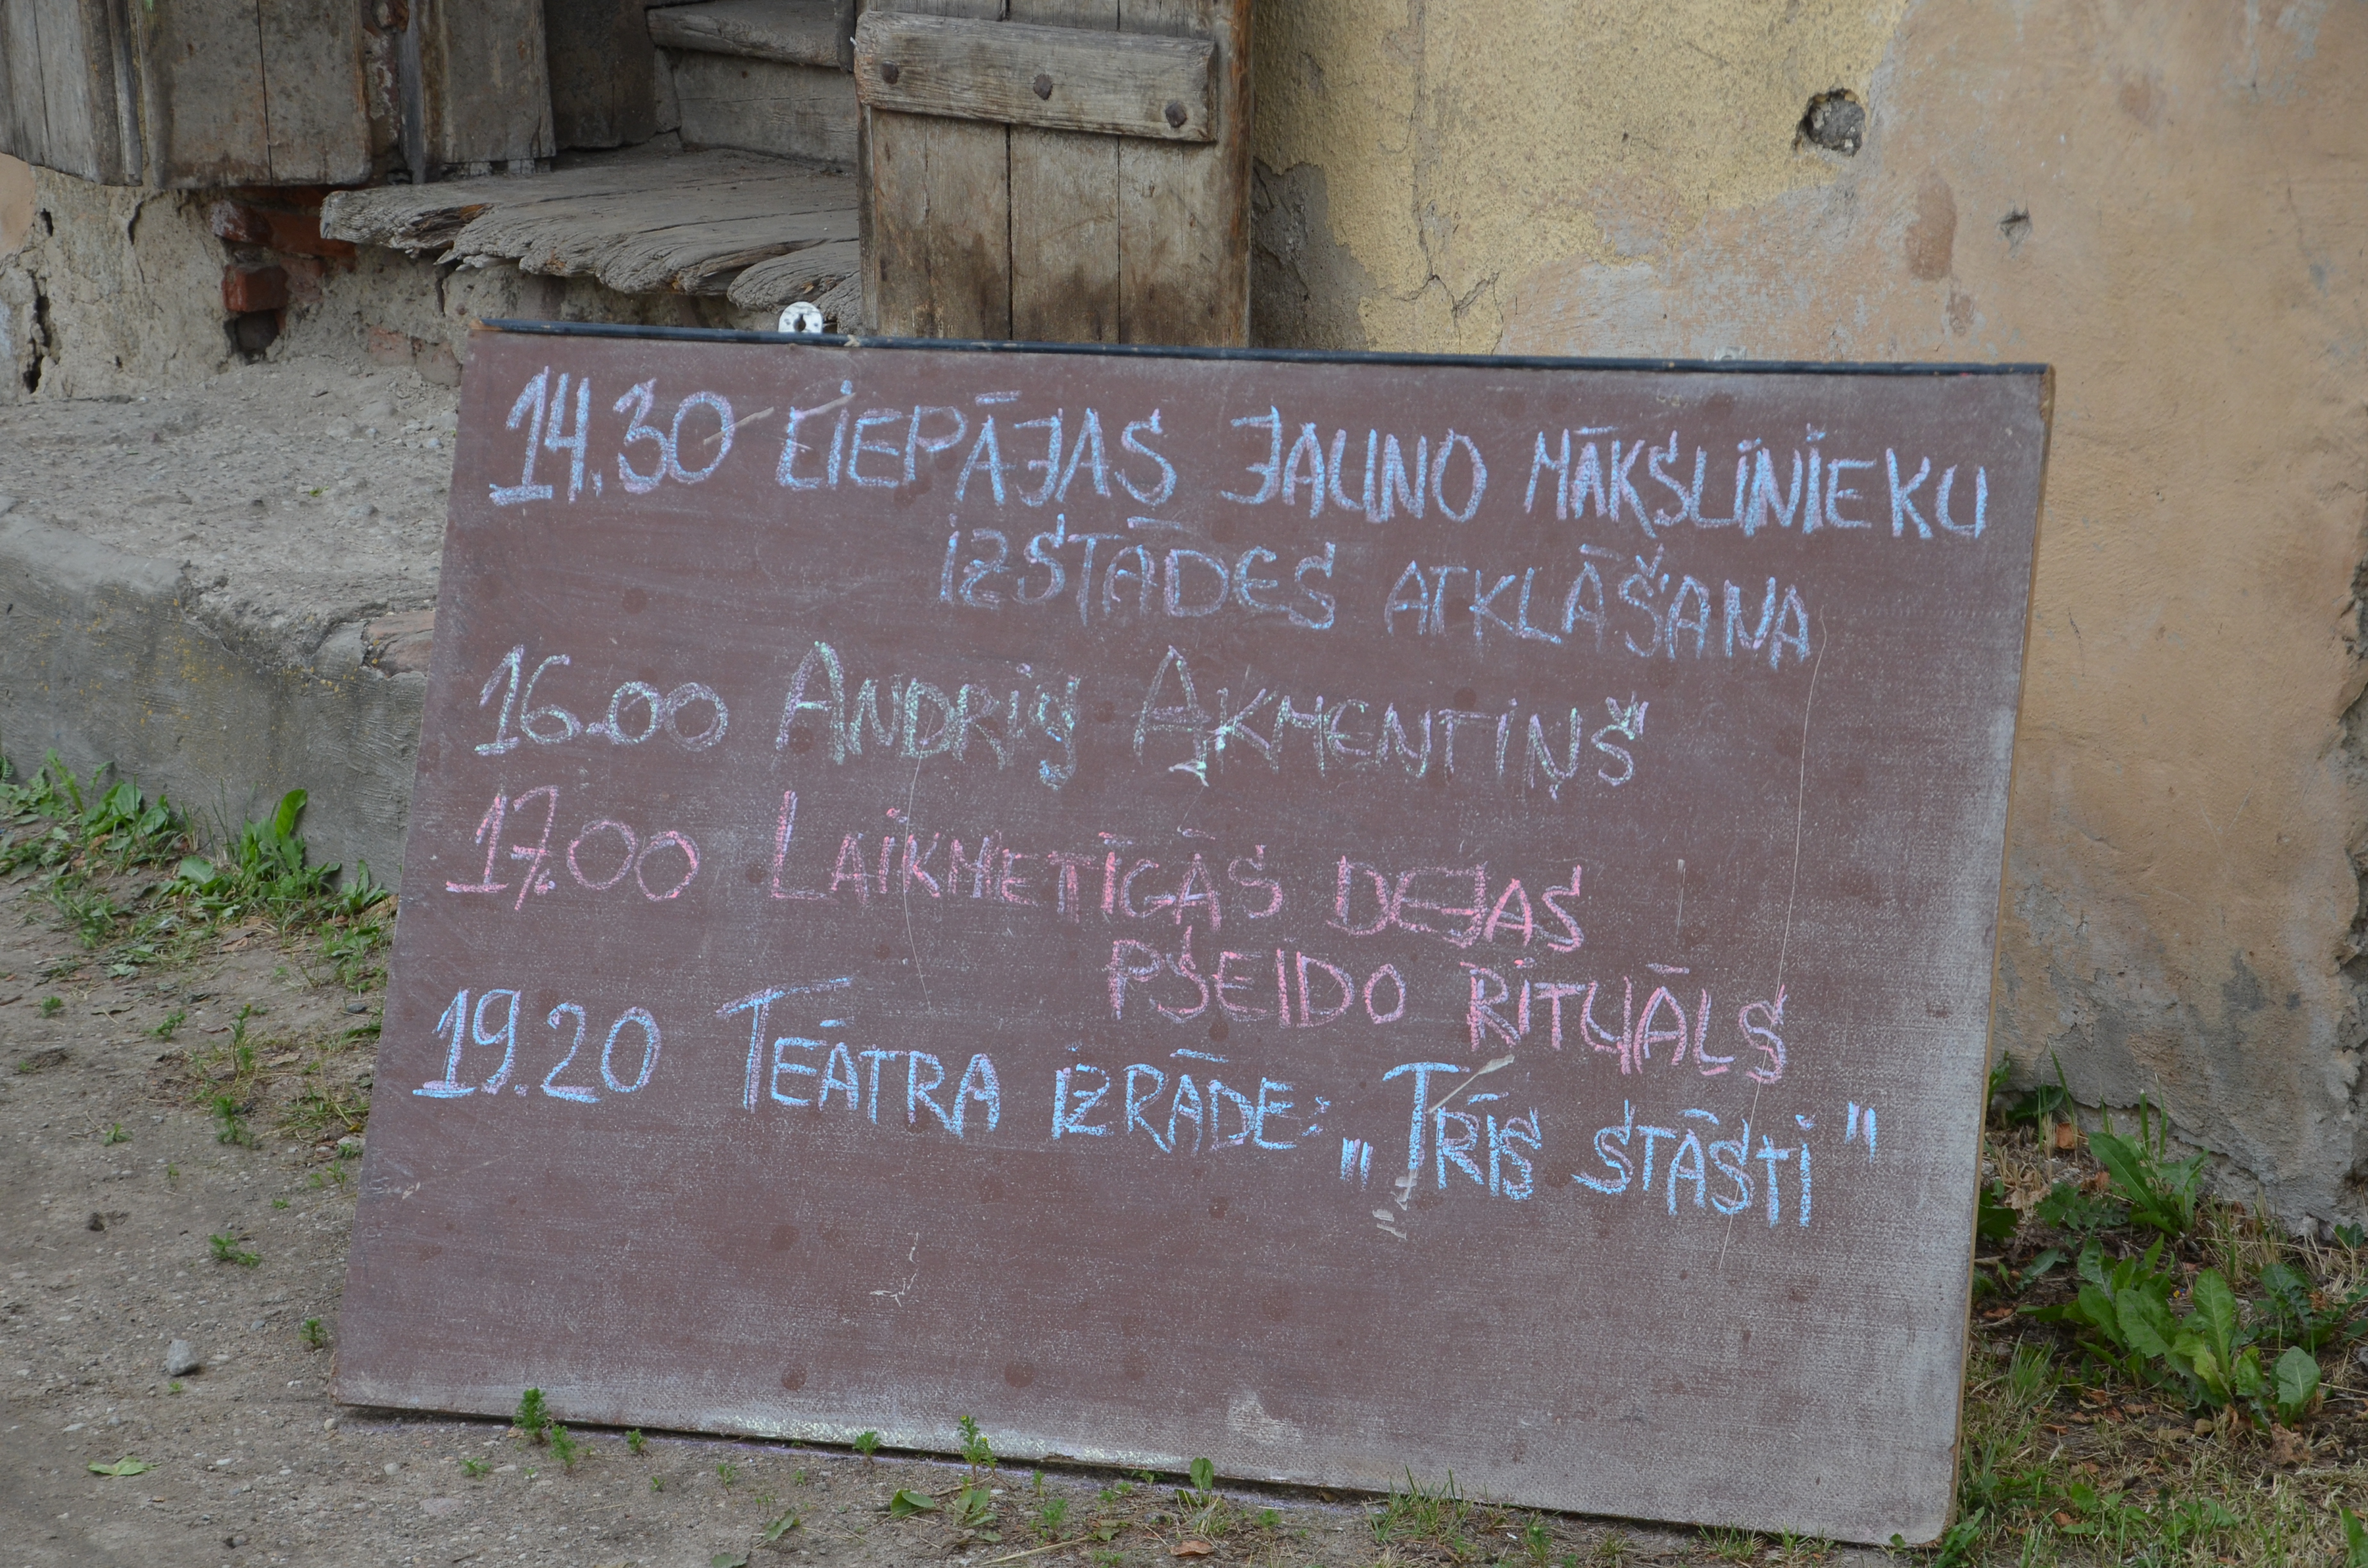 14.30 LIEPĀJAS JAUNO MĀKSLINIEKU
IZSTĀDES ATKLĀŠANA
16.00 ANDRIS AKMENTIŅŠ
17.00 LAIKMETĪGĀS DEJAS
PSEIDO RITUĀLS
19.20 TEĀTRA IZRĀDE: „TRĪS STĀSTI"